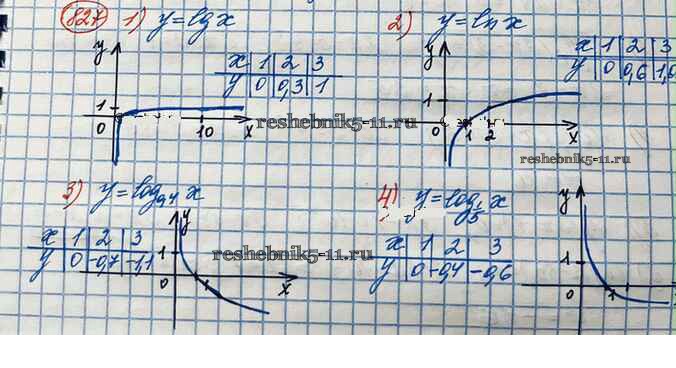 827 1) y=lg x
x 1 2 3
y 0 0,3 1
y 1 0 10 x
2) y=ln x
x 1 2 3
y 0 0,6
y 1 0 1 2 x
reshebnik5-11.ru
reshebnik5-11.ru
3) y=log₀,₄ x
x 1 2 3
y 0 -0,7 -1,1
y 1 0 1 x
reshebnik5-11.ru
4) y=log₁/₅ x
x 1 2 3
y 0 -0,4 -0,6
y 1 0 1 x